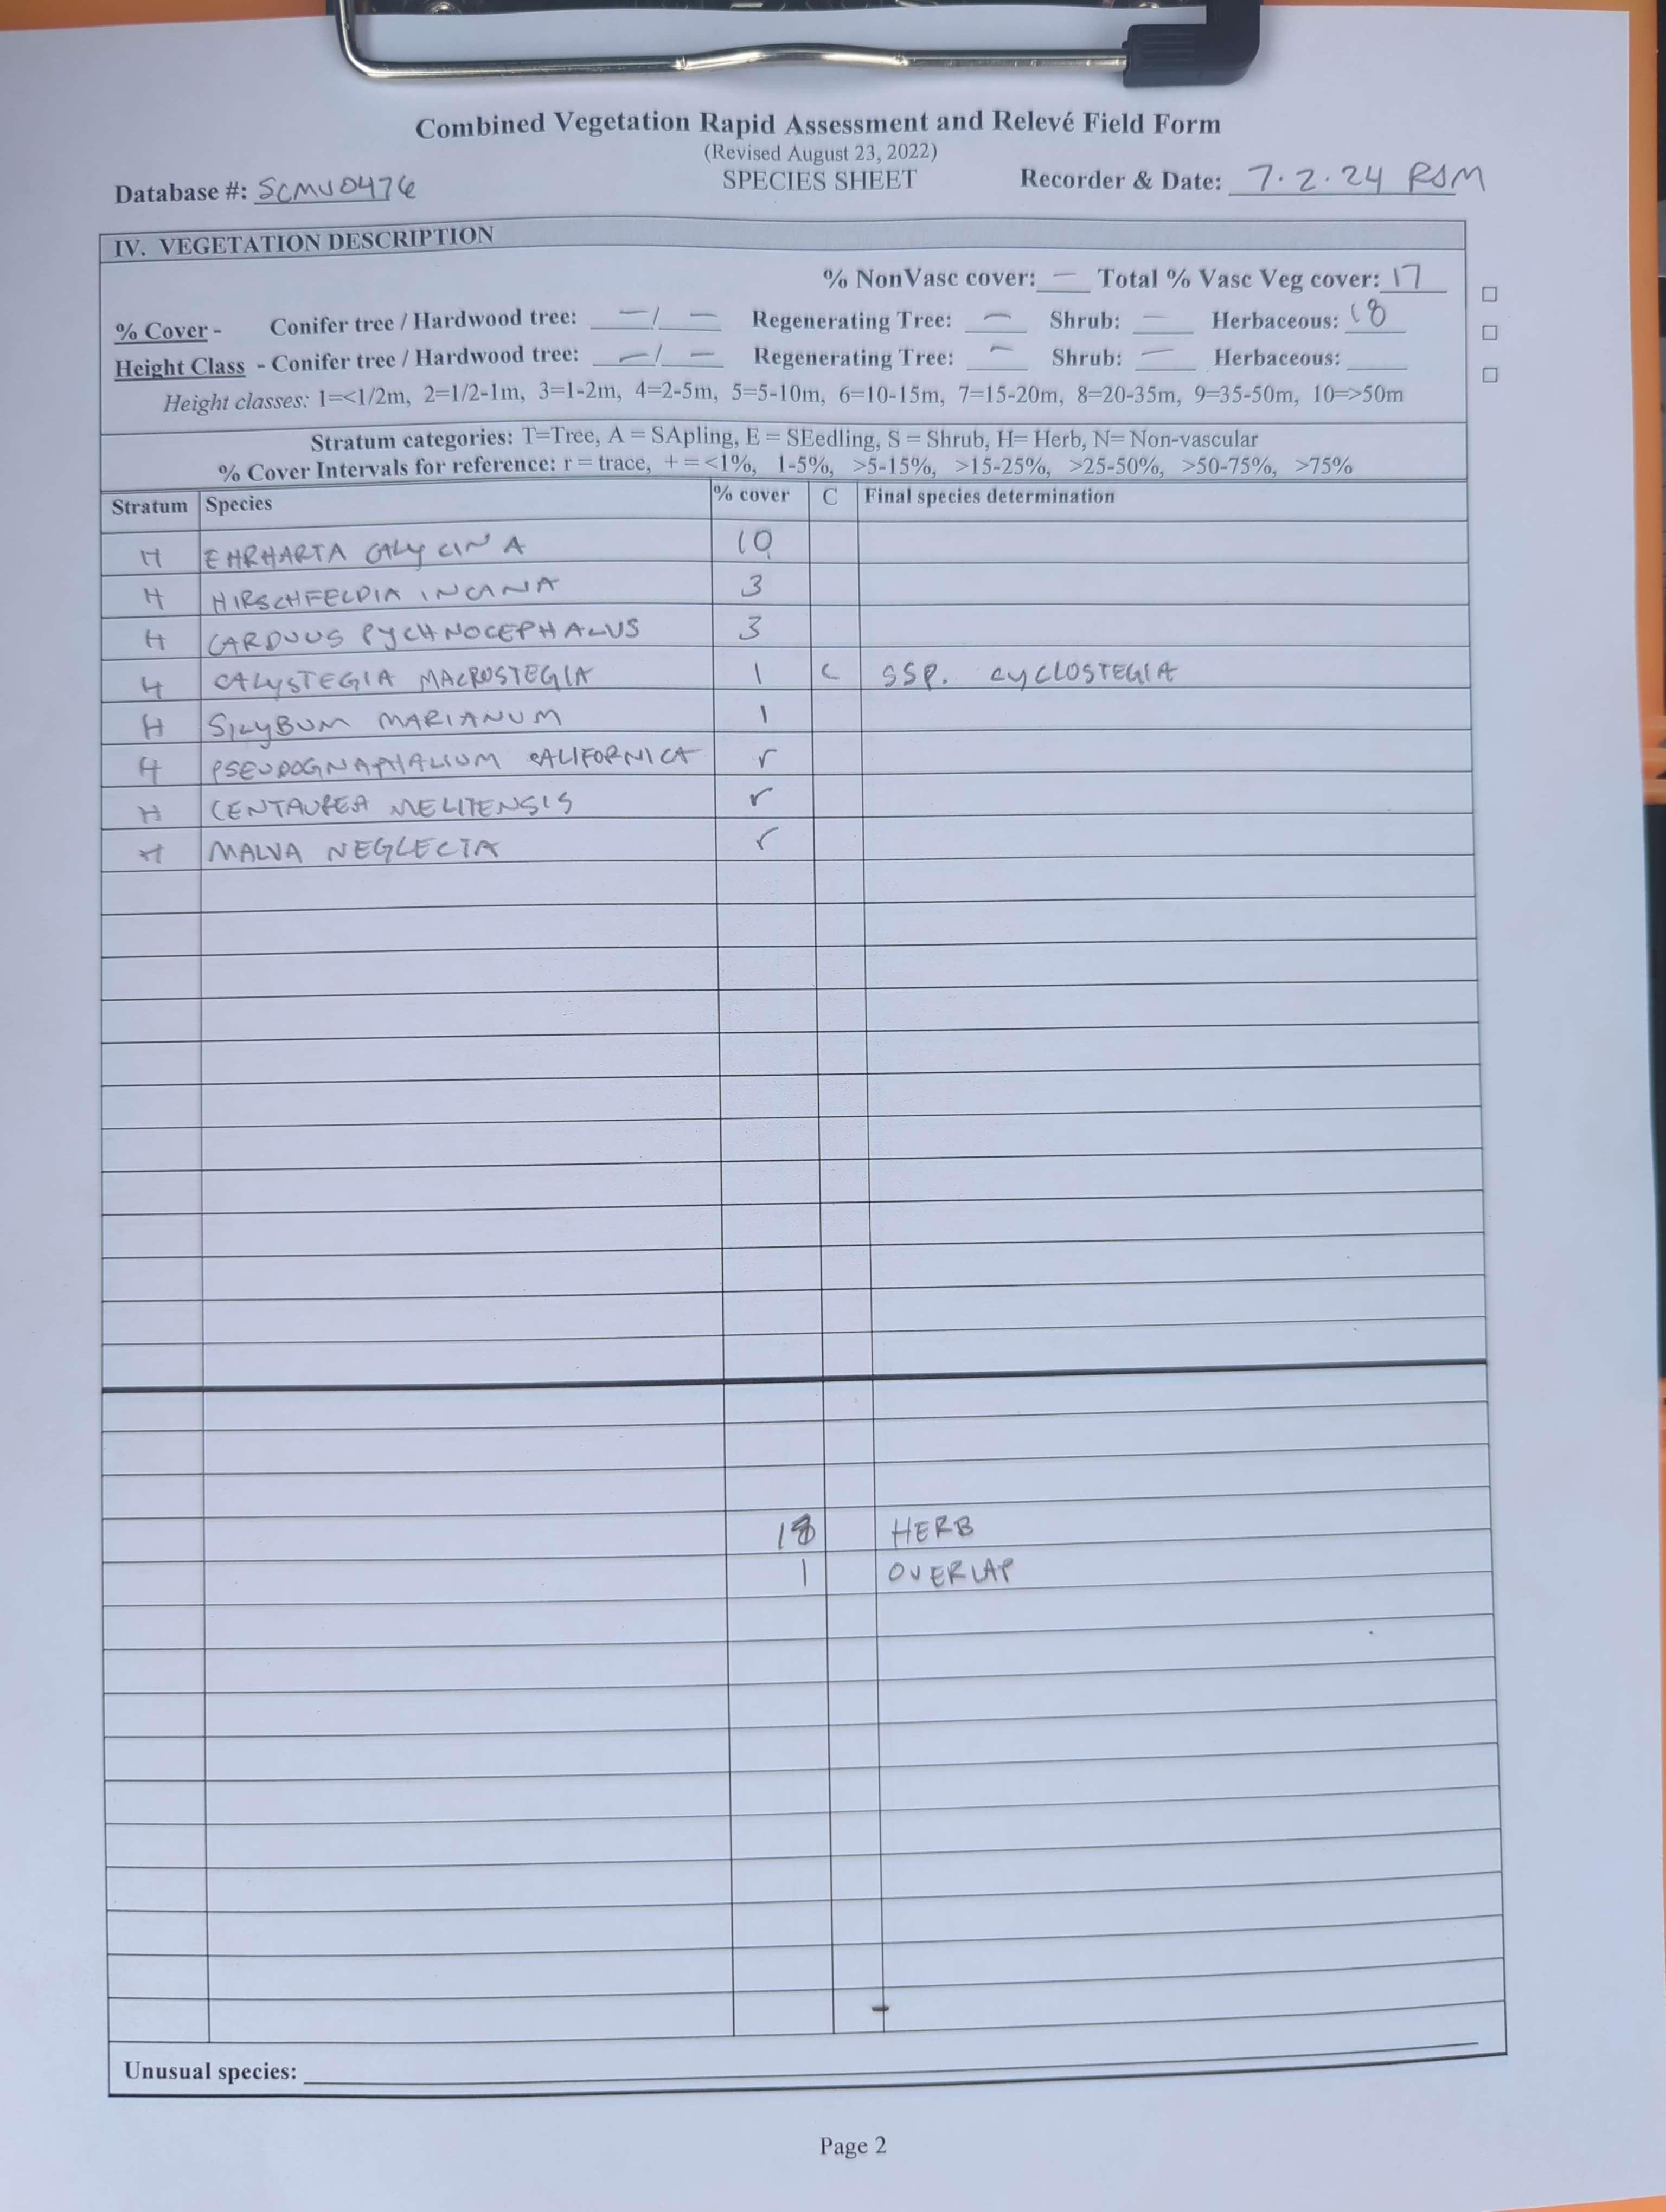 Combined Vegetation Rapid Assessment and Relevé Field Form
(Revised August 23, 2022)
Database #: SCMU0476 SPECIES SHEET Recorder & Date: 7.2.24 RSM
IV. VEGETATION DESCRIPTION
% NonVasc cover: — Total % Vasc Veg cover: 17
% Cover - Conifer tree / Hardwood tree: — / — Regenerating Tree: — Shrub: — Herbaceous: 18
Height Class - Conifer tree / Hardwood tree: — / — Regenerating Tree: — Shrub: — Herbaceous:
Height classes: 1=<1/2m, 2=1/2-1m, 3=1-2m, 4=2-5m, 5=5-10m, 6=10-15m, 7=15-20m, 8=20-35m, 9=35-50m, 10=>50m
Stratum categories: T=Tree, A = SApling, E = SEedling, S = Shrub, H= Herb, N= Non-vascular
% Cover Intervals for reference: r = trace, + = <1%, 1-5%, >5-15%, >15-25%, >25-50%, >50-75%, >75%
Stratum Species % cover C Final species determination
H EHRHARTA CALYCINA 10
H HIRSCHFELDIA INCANA 3
H CARDUUS PYCHNOCEPHALUS 3
H CALYSTEGIA MACROSTEGIA 1 C SSP. CYCLOSTEGIA
H SILYBUM MARIANUM 1
H PSEUDOGNAPHALIUM CALIFORNICA r
H CENTAUREA MELITENSIS r
H MALVA NEGLECTA r
18 HERB
1 OVERLAP
Unusual species:
Page 2